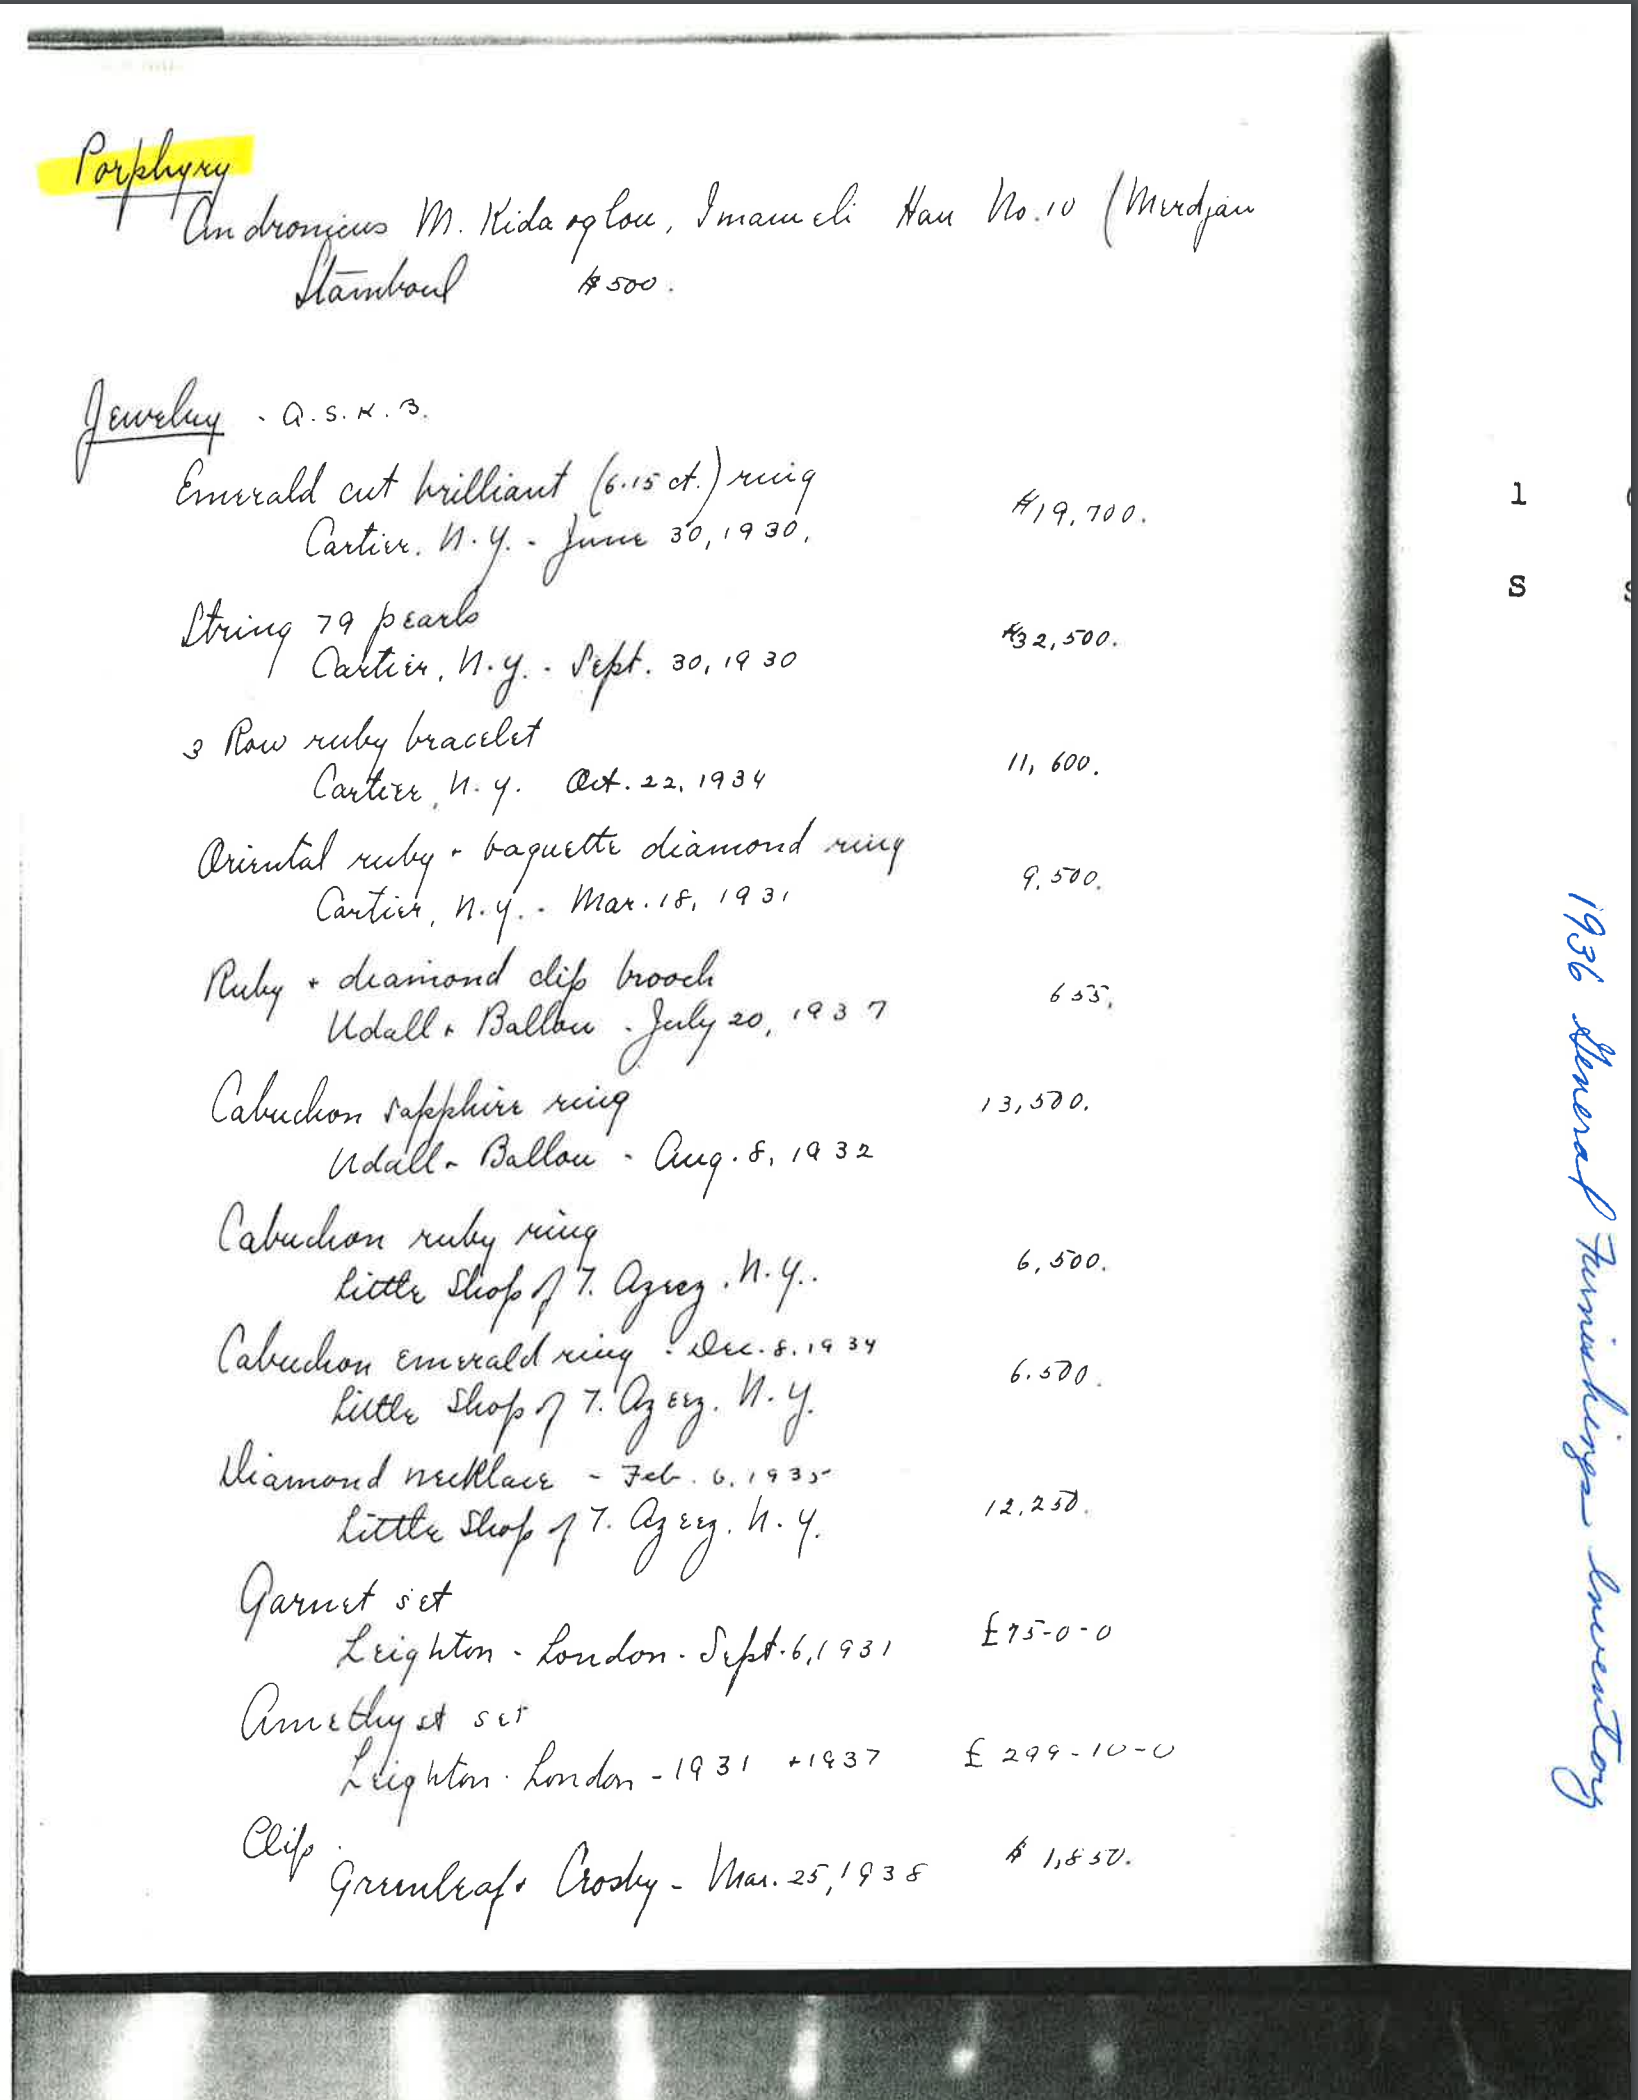 Porphyry
Andronicus M. Kidaoglou, Imameli Han No. 10 (Merdjan
Stamboul $500.
Jewelry - A.S.K.B.
Emerald cut brilliant (6.15 ct.) ring $19,700.
Cartier, N.Y. - June 30, 1930.
String 79 pearls $32,500.
Cartier, N.Y. - Sept. 30, 1930
3 Row ruby bracelet 11,600.
Cartier, N.Y. Oct. 22, 1934
Oriental ruby + baguette diamond ring 9,500.
Cartier, N.Y. - Mar. 18, 1931
Ruby + diamond clip brooch 655.
Udall + Ballou - July 20, 1937
Cabuchon sapphire ring 13,500.
Udall + Ballou - Aug. 8, 1932
Cabuchon ruby ring 6,500.
Little Shop of T. Azeez, N.Y.
Cabuchon emerald ring - Dec. 8, 1934 6.500.
Little Shop of T. Azeez, N.Y.
Diamond necklace - Feb. 6, 1935 12,250.
Little Shop of T. Azeez, N.Y.
Garnet set
Leighton - London - Sept. 6, 1931 £75-0-0
Amethyst set
Leighton - London - 1931 + 1937 £ 299-10-0
Clip
Greenleaf + Crosby - Mar. 25, 1938 $ 1,850.
1
S
1936 General Furnishings Inventory